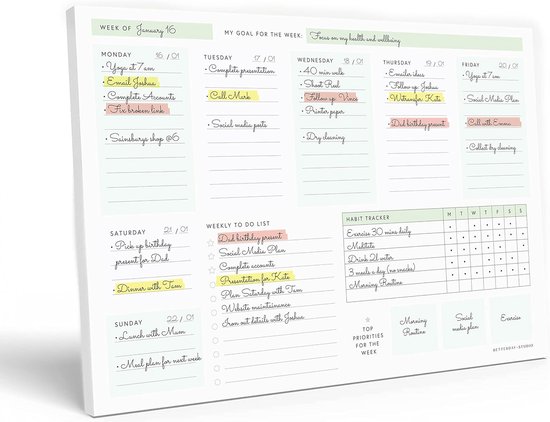 WEEK OF January 16
MY GOAL FOR THE WEEK: Focus on my health and wellbeing
MONDAY 16 / 01
• Yoga at 7am
• Email Joshua
• Complete Accounts
• Fix broken link
• Sainsburys shop @6
TUESDAY 17 / 01
• Complete presentation
• Call Mark
• Social media posts
WEDNESDAY 18 / 01
• 40 min walk
• Shoot Reel
• Follow up Vince
• Printer paper
• Dry cleaning
THURSDAY 19 / 01
• Emailer ideas
• Follow up Joshua
• Wetransfer Kate
• Dad birthday present
FRIDAY 20 / 01
• Yoga at 7am
• Social Media Plan
• Call with Emma
• Collect dry cleaning
SATURDAY 21 / 01
• Pick up birthday
present for Dad
• Dinner with Tam
SUNDAY 22 / 01
• Lunch with Mum
• Meal plan for next week
WEEKLY TO DO LIST
Dad birthday present
Social Media Plan
Complete accounts
Presentation for Kate
Plan Saturday with Tam
Website maintainance
Iron out details with Joshua
HABIT TRACKER M T W T F S S
Exercise 30 mins daily
Meditate
Drink 2l water
3 meals a day (no snacks)
Morning Routine
TOP
PRIORITIES
FOR THE
WEEK
Morning
Routine
Social
media plan
Exercise